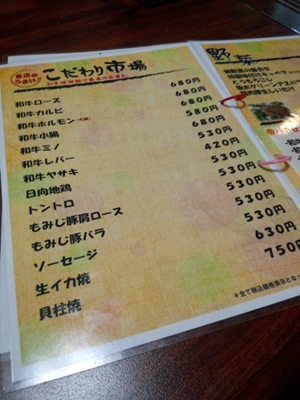 こだわり市場
和牛ロース 680円
和牛カルビ 680円
和牛ホルモン(大腸) 680円
和牛小腸 580円
和牛ミノ 680円
和牛レバー 530円
和牛ヤサキ 420円
日向地鶏 530円
トントロ 530円
もみじ豚肩ロース 530円
もみじ豚バラ 530円
ソーセージ 530円
生イカ焼 630円
貝柱焼 750円
野菜
とうもろこし